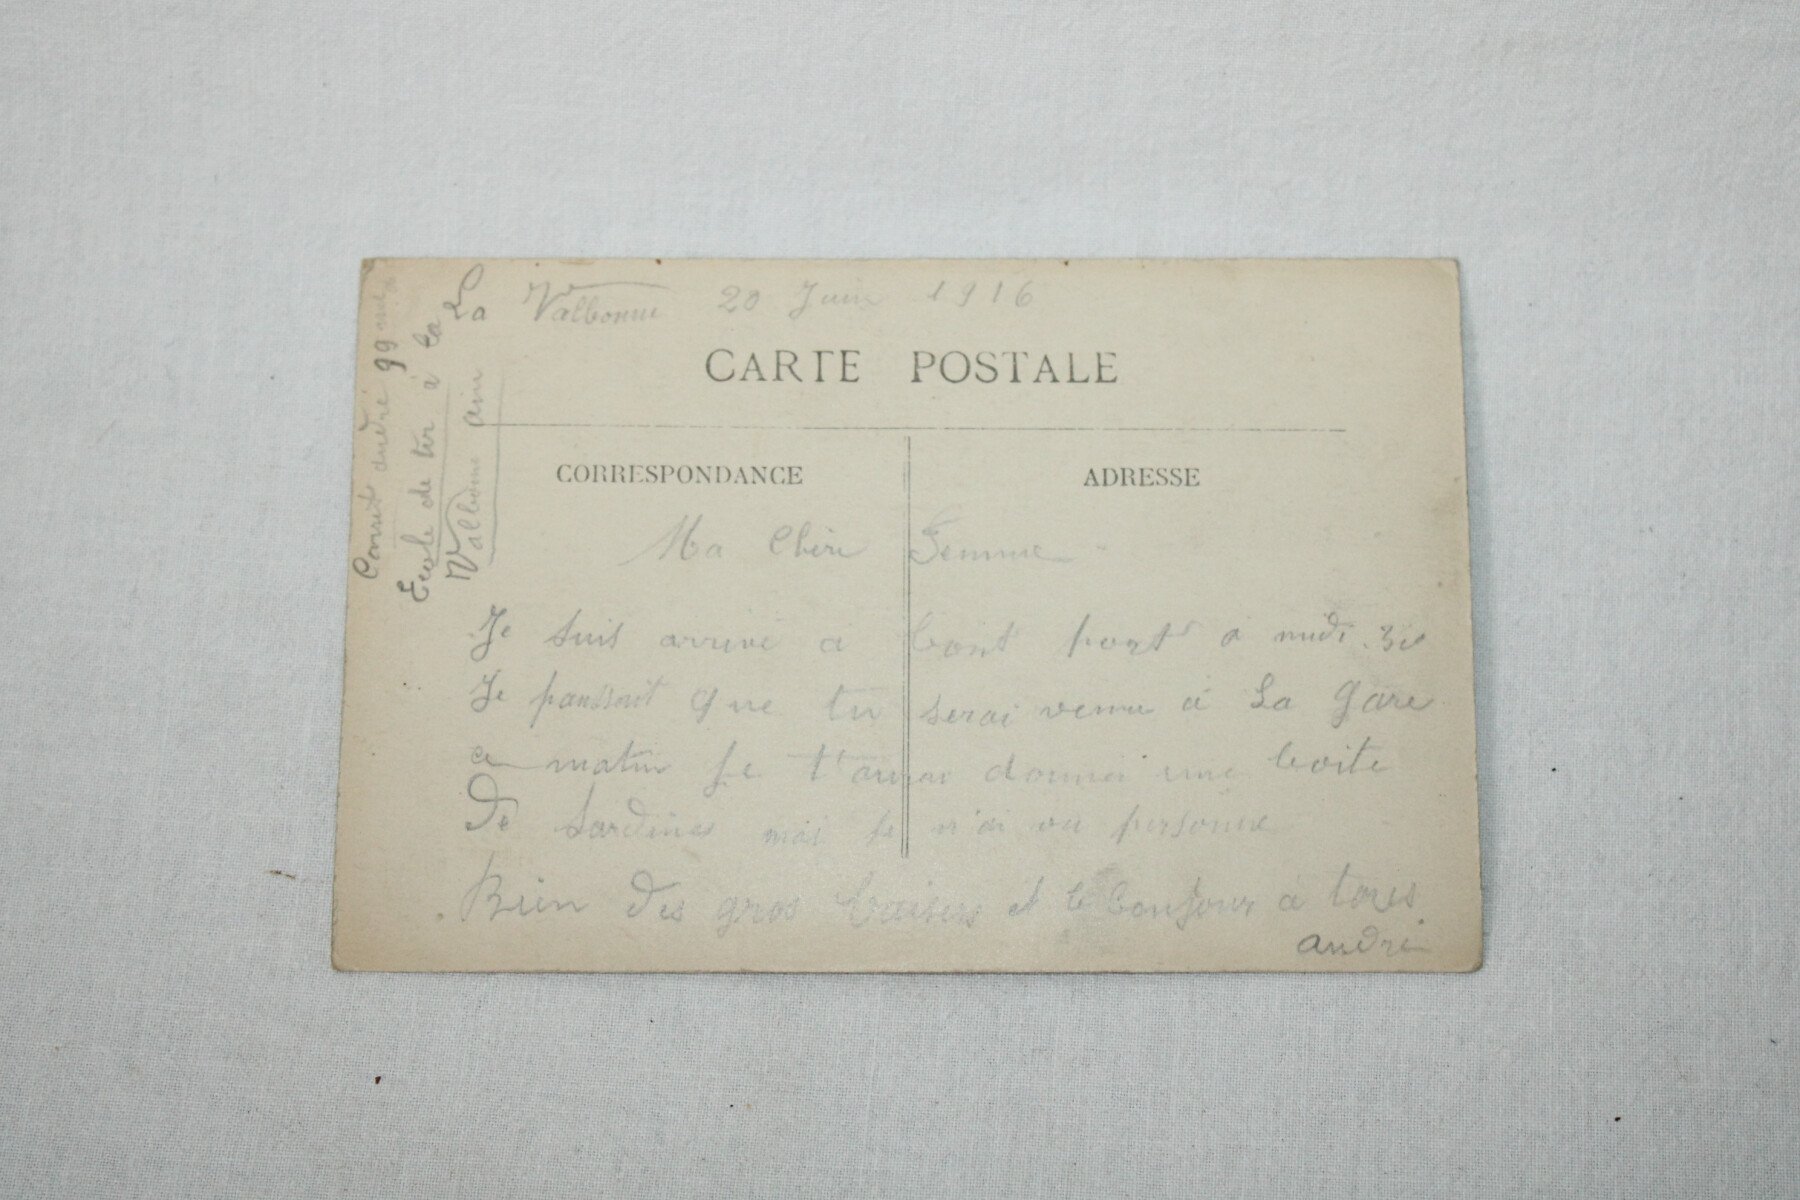 La Valbonne 20 Juin 1916
CARTE POSTALE
CORRESPONDANCE
ADRESSE
Ma Chère Femme
Je suis arrivé a bont port à midi 30
Je panssait que tu serai venu à La Gare
ce matin Je t'aurai donnei une boite
De Sardines mai Je n'ai vu personne
Bien Des gros baisers et le bonjour a tous
andré
andré 99
Ecole de tir à la
Valbonne ain